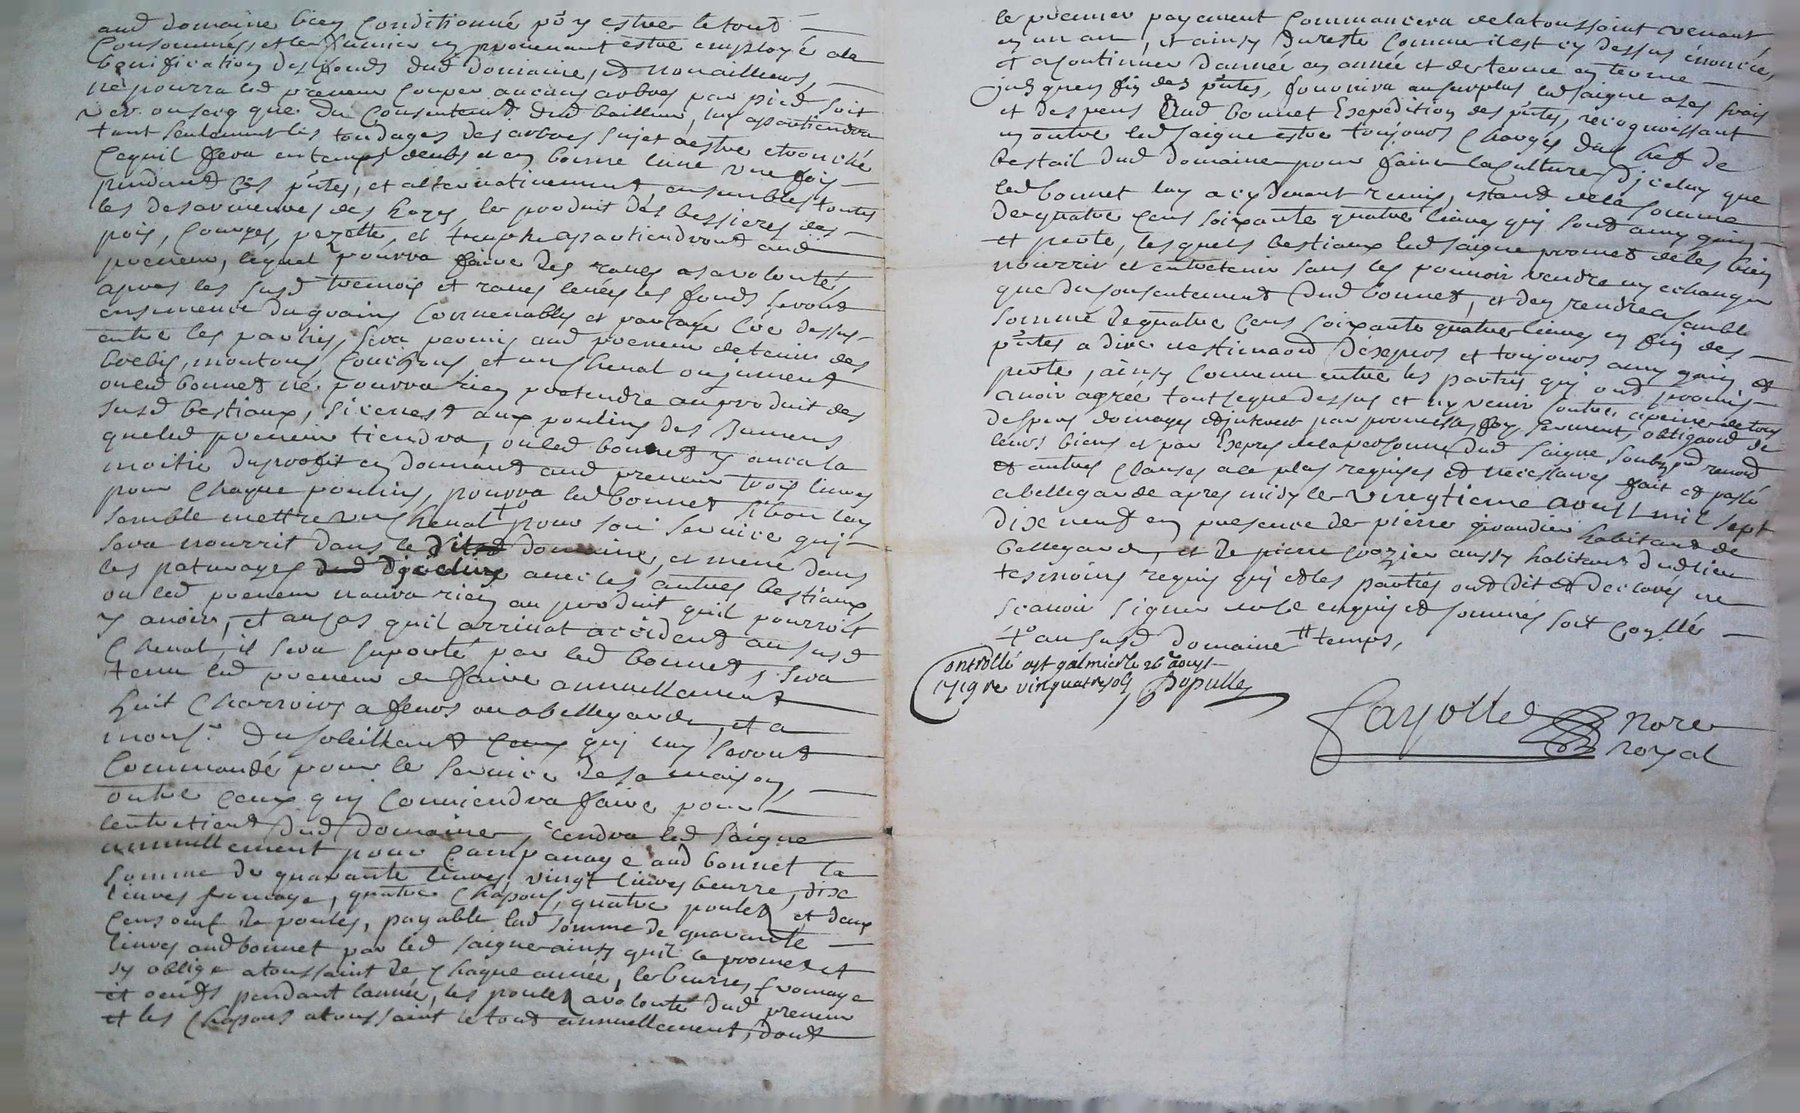 aud domaine bien Conditionné pr y estre le tout
Consommés, et le fumier en provenant estre employé ala
bonification des fonds dud domaine, et non ailleurs,
ne pourra led preneur Couper aucuns arbres par pied soit
ver ou secq que du Consentemt dud bailleur, luy apartiendra
tant seulement les tondages des arbres sujet aestre etronché
Cequil fera en temps deubs et en bonne lune une fois
pendant les pntes, et alternativement ensembles toutes
les des hayes, le produit des bessieres des
pois, Courges, pezette, et truphe apartiendront aud
preneur, lequel pourra faire des raves asavolonté
apres les susd tremois et raves levées les fonds seront
ensemencé du grains Convenables et partagé Côe dessus
entre les parties, sera permis aud preneur detenir des
brebis, moutons, Couchons, et un Cheval ou jument
ou led bonnet ne pourra rien pretendre au produit des
susd bestiaux, si cenest aux poulins des Jumens
queled preneur tiendra, ou led bonnet y aura la
moitié du profit en donnant aud preneur trois livres
pour Chaque poulins, pourra led bonnet si bon luy
semble mettre un Cheval +o pour son service qui
sera nourrit dans le domaine, et mené dans
les paturages Dyceluy avec les autres bestiaux,
ou led preneur naura rien au produit quil pourroit
y avoir, et aucas quil arrivat accident au susd
Cheval, il sera suporté par led bonnet, sera
tenu led preneur de faire annuellement
huit Charrois a feurs ou abellegarde, et a
monsr. Dusoleillant Ceux qui luy seront
Commandé pour le service de sa maison,
outre Ceux quil Conviendra faire pour
lentretient dud domaine, rendra led Saigne
annuellement pour Campanage aud bonnet la
somme de quarante livres, vingt livres beurre, dix
livres fromage, quatre Chapons, quatre poulets et deux
Cens oeuf de poules, payable lad somme de quarante
livres aud bonnet par led saigne ainsy quil le promet et
sy oblige atoussaint de Chaque année, le beurre, fromage
et oeufs pendant lannée, les poulets avolonté dud preneur
et les Chapons atoussaint le tout annuellement, dont
le premier payement Commancera de la toussaint venant
en un an, et ainsy dureste Comme il est cy dessus énoncé,
et acontinuer dannée en année et de terme en terme
jusques fin des pntes, fournira au surplus led saigne ases frais
et despens aud bonnet Expedition des pntes, recognoissant
en outre led saigne estre toujours Chargés du Chef de
bestail dud domaine pour faire la Culture dyceluy que
led bonnet luy a cydevant remis, estant de la somme
de quatre Cens soixante quatre livres qui sont amy gain
et perte, lesquels bestiaux led saigne promet de les bien
nourrir et entretenir sans les pouvoir vendre ny echanger
que du Consentement dud bonnet, et den rendre semble
somme de quatre Cens soixante quatre livres en fin des
pntes a dire et toujours amy gain et
perte, ainsy Convenu entre les parties qui ont promis
avoir agréé tout ceque dessus et ny venir Contre apeine de tous
despens domages et interest par promesse foy serment, obligaon de
leurs biens et par Expres de la personne dud saigne renon
et autres Clauses ace plus requises et necessaires fait et passé
abellegarde apres midy le vingtieme aoust mil sept
dix neuf en presence de pierre girandier habitant de
bellegarde, et de pierre crozier aussy habitant dud lieu
tesmoins requis qui et les parties ont dit et declarés ne
scavoir signer de ce enquis et sommés soit Collé
+o au susd domaine # temps,
Controllé a st galmier le 26e aoust
1719 re vinquatre sols Populle
Fayolle Nore
royal